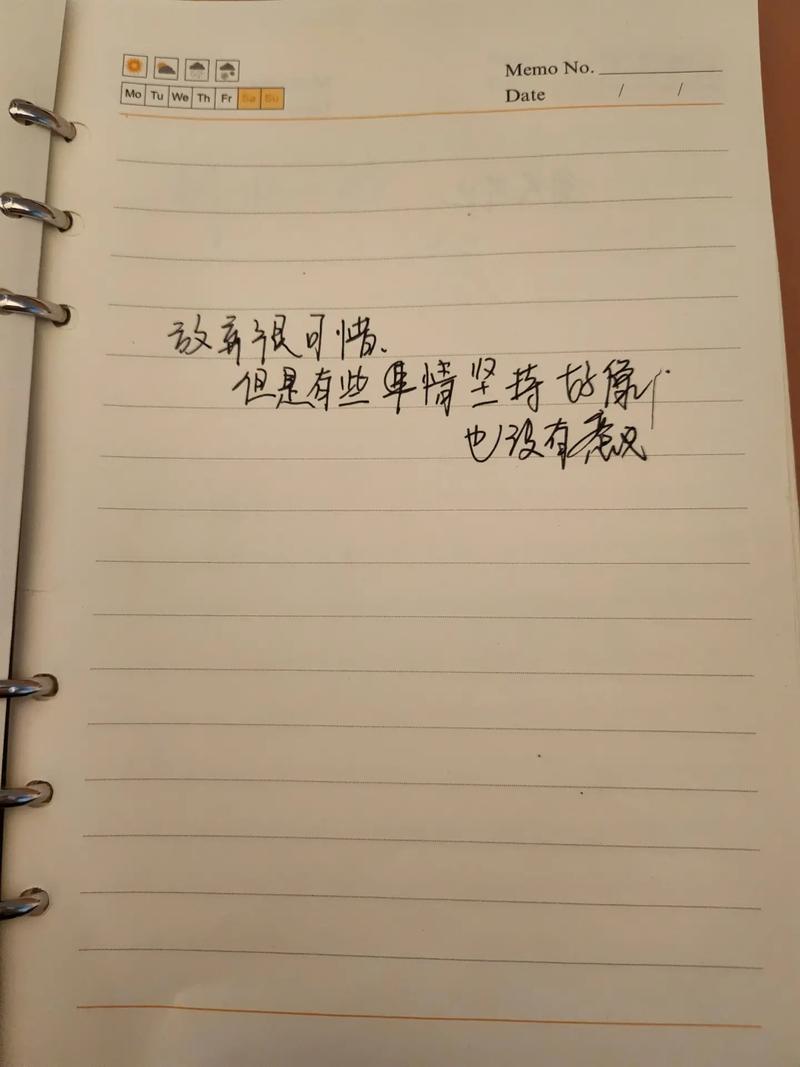 Memo No.
Mo Tu We Th Fr Sa Su
Date / /
放弃很可惜.
但是有些事情坚持好像
也没有意义